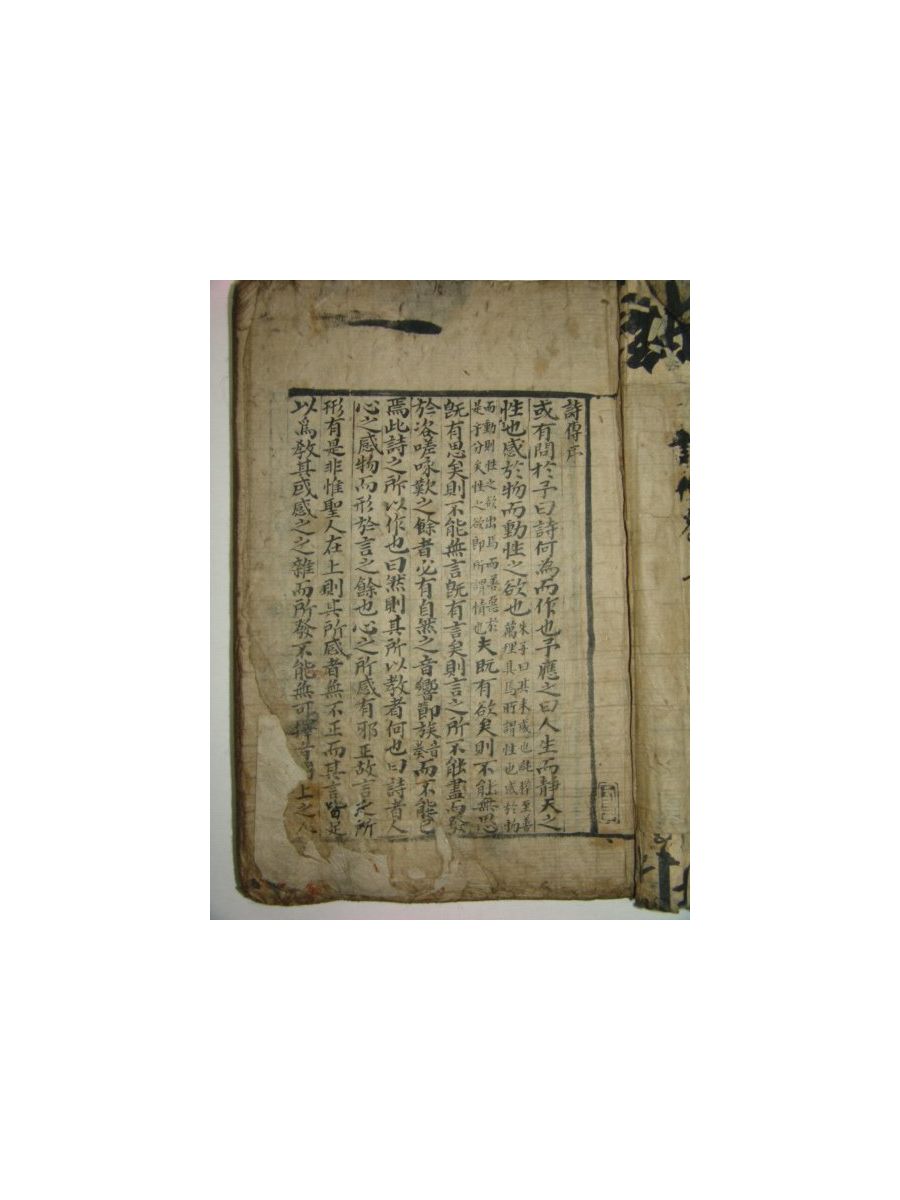 詩傳序
或有問於予曰詩何為而作也予應之曰人生而靜天之
性也感於物而動性之欲也朱子曰其未感也純粹至善
萬理具焉所謂性也感於物
而動則性之欲出焉而善惡於
是乎分矣性之欲即所謂情也夫既有欲矣則不能無思
既有思矣則不能無言既有言矣則言之所不能盡而發
於咨嗟咏歎之餘者必有自然之音響節族音奏而不能已
焉此詩之所以作也曰然則其所以教者何也曰詩者人
心之感物而形於言之餘也心之所感有邪正故言之所
形有是非惟聖人在上則其所感者無不正而其言皆足
以爲教其或感之之雜而所發不能無可擇者則上之人